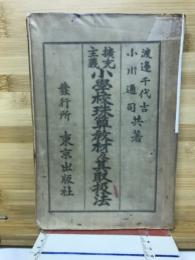 渡邉千代吉
小川通司 共著
擴充
主義 小學校珠算教材及其取扱法
發行所 東京出版社